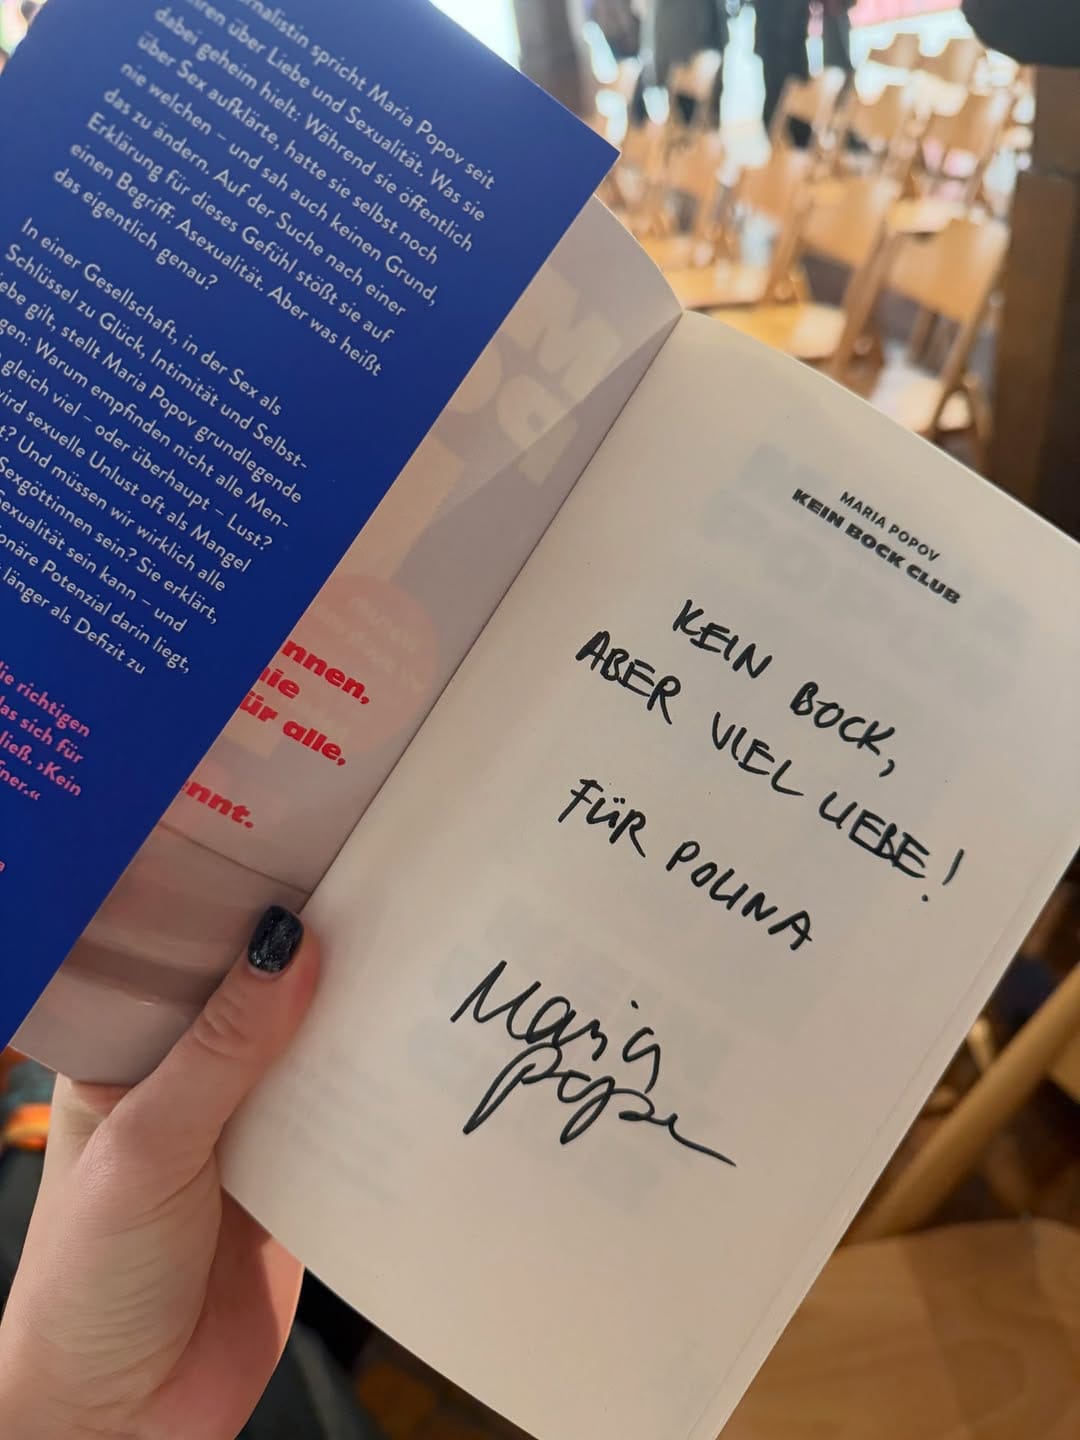 rnalistin spricht Maria Popov seit
hren über Liebe und Sexualität. Was sie
dabei geheim hielt: Während sie öffentlich
über Sex aufklärte, hatte sie selbst noch
nie welchen – und sah auch keinen Grund,
das zu ändern. Auf der Suche nach einer
Erklärung für dieses Gefühl stößt sie auf
einen Begriff: Asexualität. Aber was heißt
das eigentlich genau?
In einer Gesellschaft, in der Sex als
Schlüssel zu Glück, Intimität und Selbst-
ebe gilt, stellt Maria Popov grundlegende
gen: Warum empfinden nicht alle Men-
gleich viel – oder überhaupt – Lust?
ird sexuelle Unlust oft als Mangel
t? Und müssen wir wirklich alle
Sexgöttinnen sein? Sie erklärt,
exualität sein kann – und
onäre Potenzial darin liegt,
länger als Defizit zu
ie richtigen
as sich für
ließ. ›Kein
ner.«
nnen,
nie
ür alle,
nnt.
MARIA POPOV
KEIN BOCK CLUB
KEIN BOCK,
ABER VIEL LIEBE!
FÜR POLINA
Maria
Popov